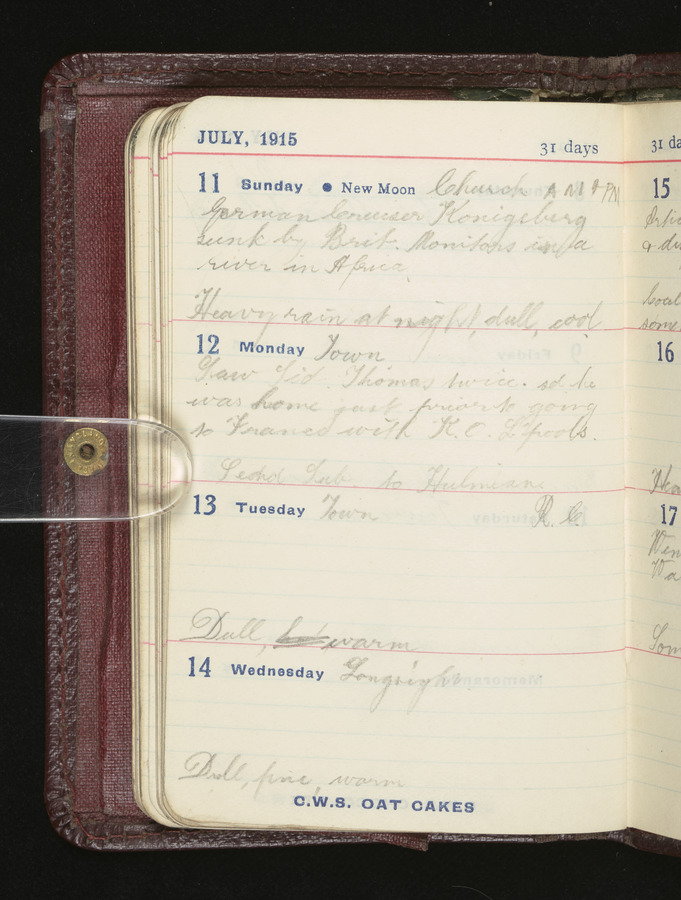 JULY, 1915 31 days
11 Sunday ● New Moon Church AM & PM
German Creuser Konigsberg
sunk by Brit. Monitors in a
river in Africa.
Heavy rain at night, dull, cool
12 Monday Town
Saw Sid Thomas twice. sd. he
was home just prior to going
to France with K.O. L'pools.
Send Sub. to Hulmeian
13 Tuesday Town R.C.
Dull, warm
14 Wednesday Longsight
Dull, fine, warm
C.W.S. OAT CAKES
31 da
15
& di
local
some
16
Hea
17
Wen
Wa
Som